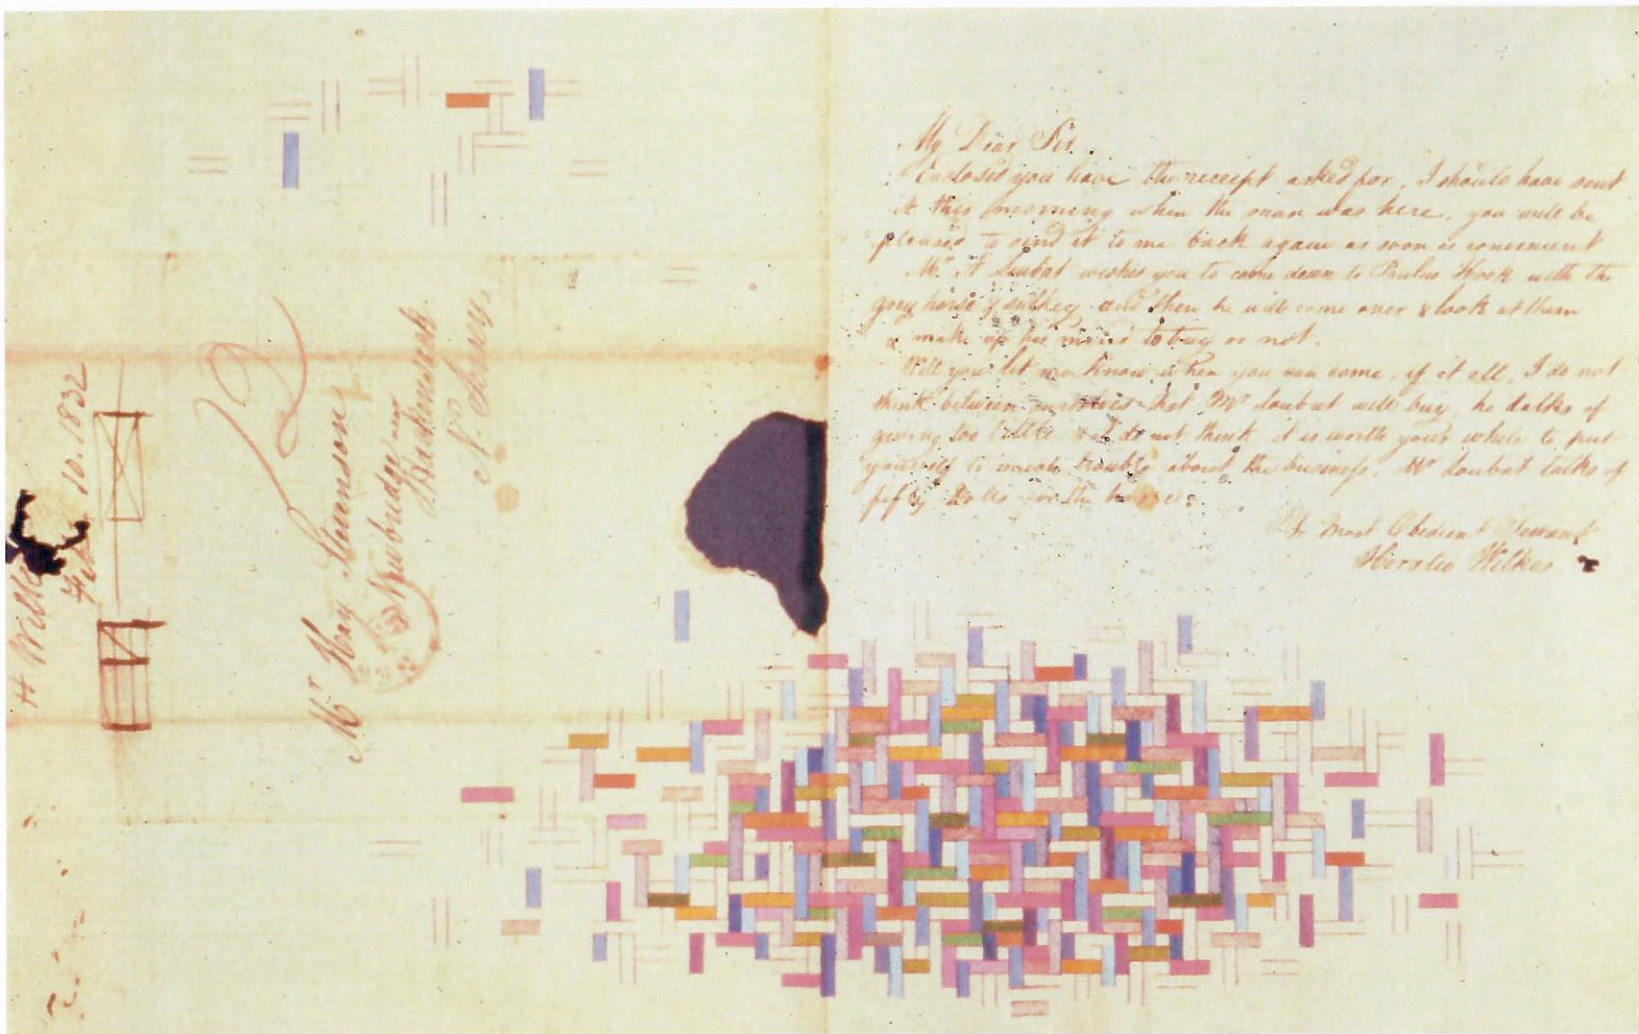 H Wilkes
Feb. 10. 1832
Mr Hay Stevenson
Newbridge near
Hackensack
N. Jersey
My Dear Sir.
Enclosed you have the receipt asked for, I should have sent
it this morning when the man was here, you will be
pleased to send it to me back again as soon as convenient
Mr. A Loubat wishes you to come down to Paulus Hook with the
grey horse & sulkey and then he will come over & look at them
& make up his mind to buy or not.
Will you let me know when you can come, if at all, I do not
think between ourselves that Mr Loubat will buy, he talks of
giving too little & I do not think it is worth your while to put
yourself to much trouble about the business. Mr Loubat talks of
fifty Dolls for the horse.
Yr Most Obedient Servant
Horatio Wilkes